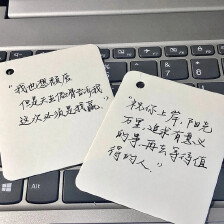 “我也想颓废
但是天生傲骨告诉我
这次必须是我赢”
“祝你上岸，阳光
万里，追求有意义
的事，再去等待值
得的人。”